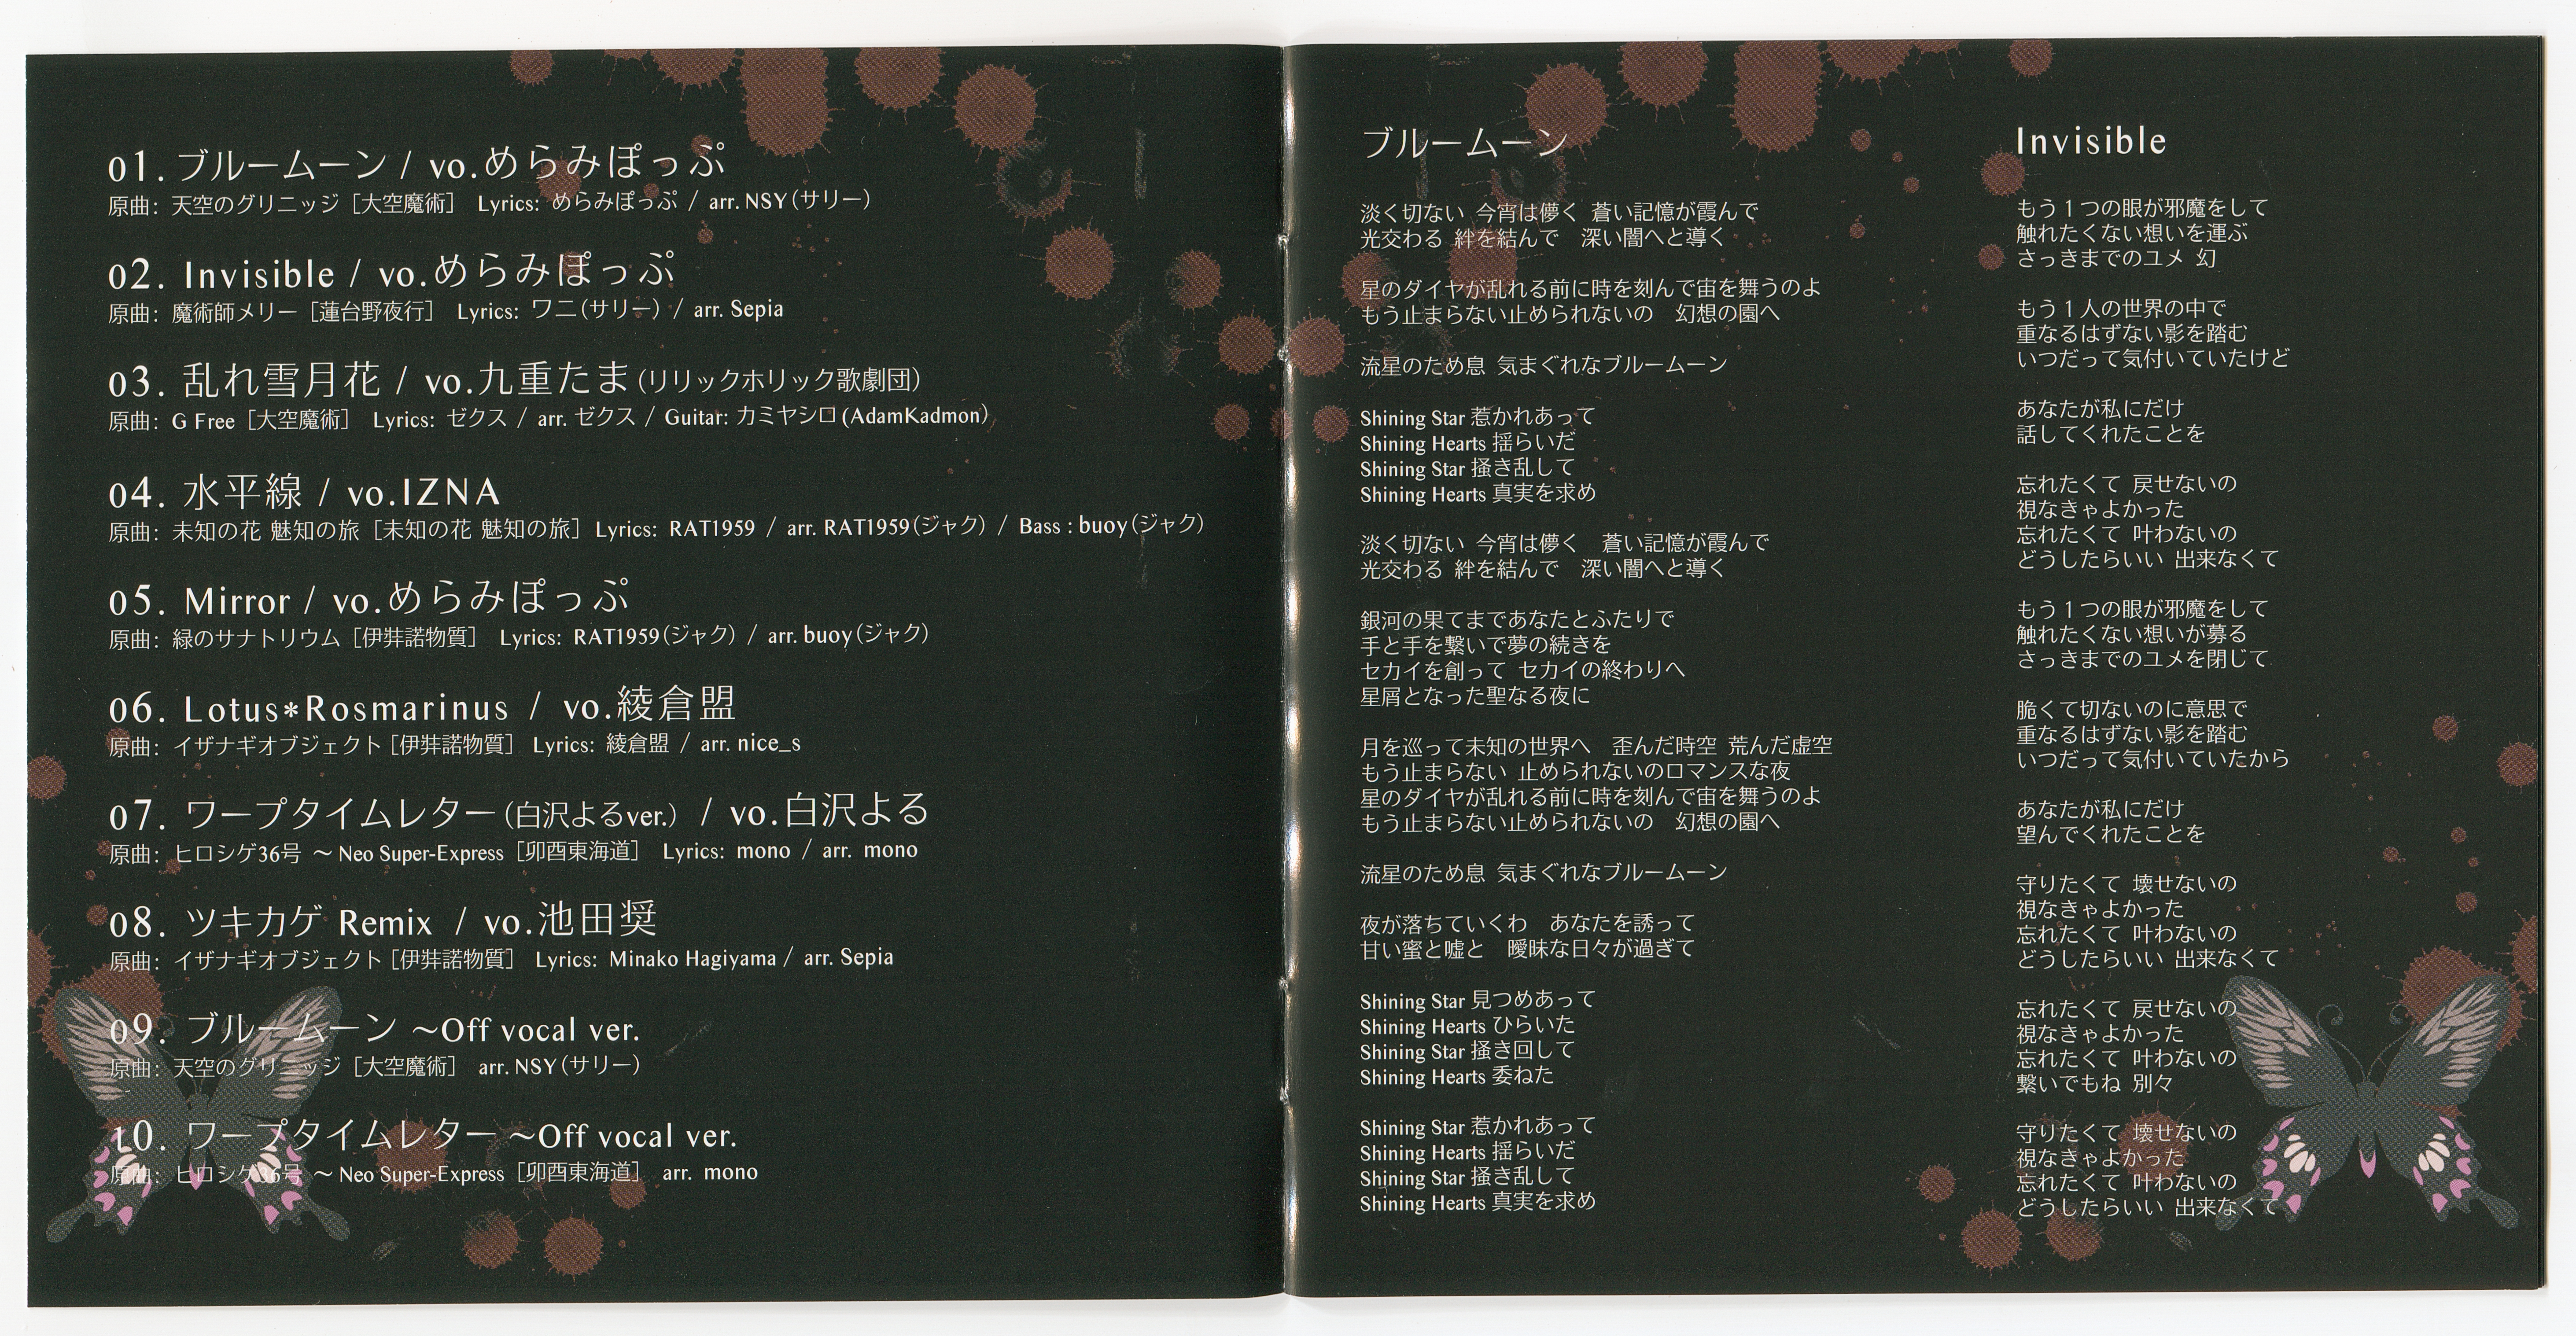 01. ブルームーン / vo.めらみぽっぷ
原曲: 天空のグリニッジ［大空魔術］ Lyrics: めらみぽっぷ / arr. NSY（サリー）
02. Invisible / vo.めらみぽっぷ
原曲: 魔術師メリー［蓮台野夜行］ Lyrics: ワニ（サリー） / arr. Sepia
03. 乱れ雪月花 / vo.九重たま（リリックホリック歌劇団）
原曲: G Free［大空魔術］ Lyrics: ゼクス / arr. ゼクス / Guitar: カミヤシロ (AdamKadmon)
04. 水平線 / vo.IZNA
原曲: 未知の花 魅知の旅［未知の花 魅知の旅］ Lyrics: RAT1959 / arr. RAT1959（ジャク） / Bass : buoy（ジャク）
05. Mirror / vo.めらみぽっぷ
原曲: 緑のサナトリウム［伊弉諾物質］ Lyrics: RAT1959（ジャク） / arr. buoy（ジャク）
06. Lotus*Rosmarinus / vo.綾倉盟
原曲: イザナギオブジェクト［伊弉諾物質］ Lyrics: 綾倉盟 / arr. nice_s
07. ワープタイムレター（白沢よるver.） / vo.白沢よる
原曲: ヒロシゲ36号 ～ Neo Super-Express［卯酉東海道］ Lyrics: mono / arr. mono
08. ツキカゲ Remix / vo.池田奨
原曲: イザナギオブジェクト［伊弉諾物質］ Lyrics: Minako Hagiyama / arr. Sepia
09. ブルームーン ～Off vocal ver.
原曲: 天空のグリニッジ［大空魔術］ arr. NSY（サリー）
10. ワープタイムレター ～Off vocal ver.
原曲: ヒロシゲ36号 ～ Neo Super-Express［卯酉東海道］ arr. mono
ブルームーン
淡く切ない 今宵は儚く 蒼い記憶が霞んで
光交わる 絆を結んで 深い闇へと導く
星のダイヤが乱れる前に時を刻んで宙を舞うのよ
もう止まらない止められないの 幻想の園へ
流星のため息 気まぐれなブルームーン
Shining Star 惹かれあって
Shining Hearts 揺らいだ
Shining Star 掻き乱して
Shining Hearts 真実を求め
淡く切ない 今宵は儚く 蒼い記憶が霞んで
光交わる 絆を結んで 深い闇へと導く
銀河の果てまであなたとふたりで
手と手を繋いで夢の続きを
セカイを創って セカイの終わりへ
星屑となった聖なる夜に
月を巡って未知の世界へ 歪んだ時空 荒んだ虚空
もう止まらない 止められないのロマンスな夜
星のダイヤが乱れる前に時を刻んで宙を舞うのよ
もう止まらない止められないの 幻想の園へ
流星のため息 気まぐれなブルームーン
夜が落ちていくわ あなたを誘って
甘い蜜と嘘と 曖昧な日々が過ぎて
Shining Star 見つめあって
Shining Hearts ひらいた
Shining Star 掻き回して
Shining Hearts 委ねた
Shining Star 惹かれあって
Shining Hearts 揺らいだ
Shining Star 掻き乱して
Shining Hearts 真実を求め
Invisible
もう１つの眼が邪魔をして
触れたくない想いを運ぶ
さっきまでのユメ 幻
もう１人の世界の中で
重なるはずない影を踏む
いつだって気付いていたけど
あなたが私にだけ
話してくれたことを
忘れたくて 戻せないの
視なきゃよかった
忘れたくて 叶わないの
どうしたらいい 出来なくて
もう１つの眼が邪魔をして
触れたくない想いが募る
さっきまでのユメを閉じて
脆くて切ないのに意思で
重なるはずない影を踏む
いつだって気付いていたから
あなたが私にだけ
望んでくれたことを
守りたくて 壊せないの
視なきゃよかった
忘れたくて 叶わないの
どうしたらいい 出来なくて
忘れたくて 戻せないの
視なきゃよかった
忘れたくて 叶わないの
繋いでもね 別々
守りたくて 壊せないの
視なきゃよかった
忘れたくて 叶わないの
どうしたらいい 出来なくて